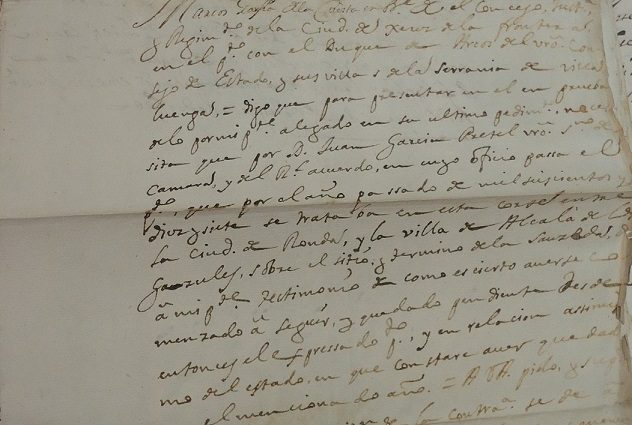 Marcos García de la Cuesta en nre. de el Concejo, Justi
y Regimto. de la Ciud. de Xerez de la frontera
en el pto. con el Duque de Arcos del vro. Con
sejo de Estado, y sus villas de la Serrania de Villa
luenga, = digo que para presentar en el en prueba
de lo por mi pte. alegado en su ultimo pedimto. nece
sita que por D. Juan Garcia Pretel vro. Sno. de
Camara, y del Rl. acuerdo, en cuyo oficio passa el
pto., que por el año passado de mil seiscientos y
diez y siete se trataba en esta corte entre
la Ciud. de Ronda, y la villa de Alcala de los
Gazules, sobre el sitio, y termino de la Sauzeda, de
a mi pte. testimonio de como es cierto averse co
menzado a seguir, y quedado pendiente desde
entonces el expressado pto., y en relacion assimis
mo del estado, en que constare aver quedado
el mencionado año. = A V.A. pido, y sup
la contra. se de